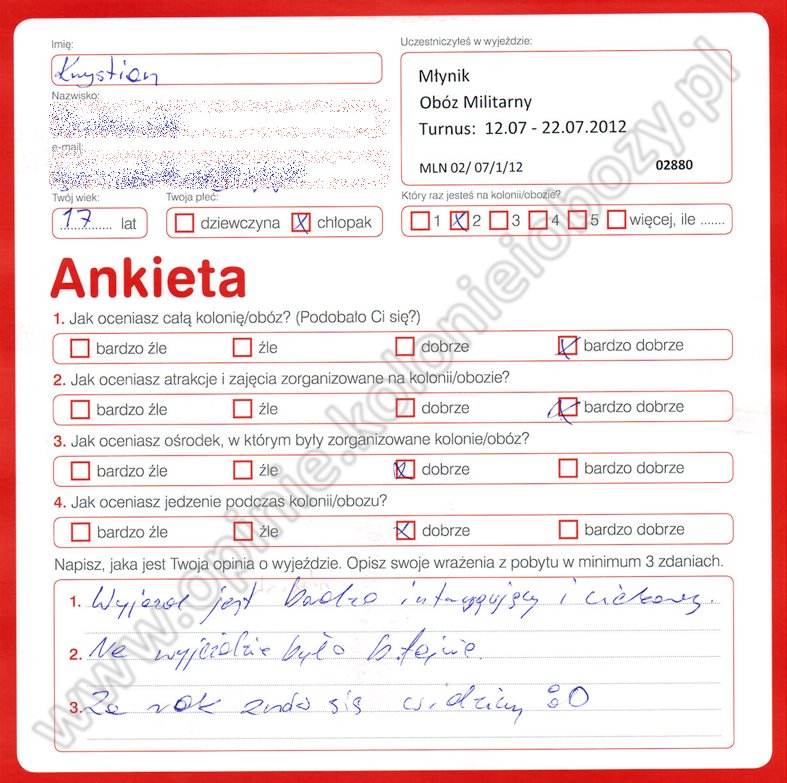 Imię:
Krystian
Nazwisko:
e-mail:
Twój wiek:
17 lat
Twoja płeć:
dziewczyna chłopak
Uczestniczyłeś w wyjeździe:
Młynik
Obóz Militarny
Turnus: 12.07 - 22.07.2012
MLN 02/ 07/1/12 02880
Który raz jesteś na kolonii/obozie?
1 2 3 4 5 więcej, ile .......
Ankieta
1. Jak oceniasz całą kolonię/obóz? (Podobało Ci się?)
bardzo źle źle dobrze bardzo dobrze
2. Jak oceniasz atrakcje i zajęcia zorganizowane na kolonii/obozie?
bardzo źle źle dobrze bardzo dobrze
3. Jak oceniasz ośrodek, w którym były zorganizowane kolonie/obóz?
bardzo źle źle dobrze bardzo dobrze
4. Jak oceniasz jedzenie podczas kolonii/obozu?
bardzo źle źle dobrze bardzo dobrze
Napisz, jaka jest Twoja opinia o wyjeździe. Opisz swoje wrażenia z pobytu w minimum 3 zdaniach.
1. Wyjazd jest bardzo intrygujący i ciekawy.
2. Na wyjeździe było fajnie.
3. Za rok znów się widzimy :D
www.opinie.kolonieiobozy.pl